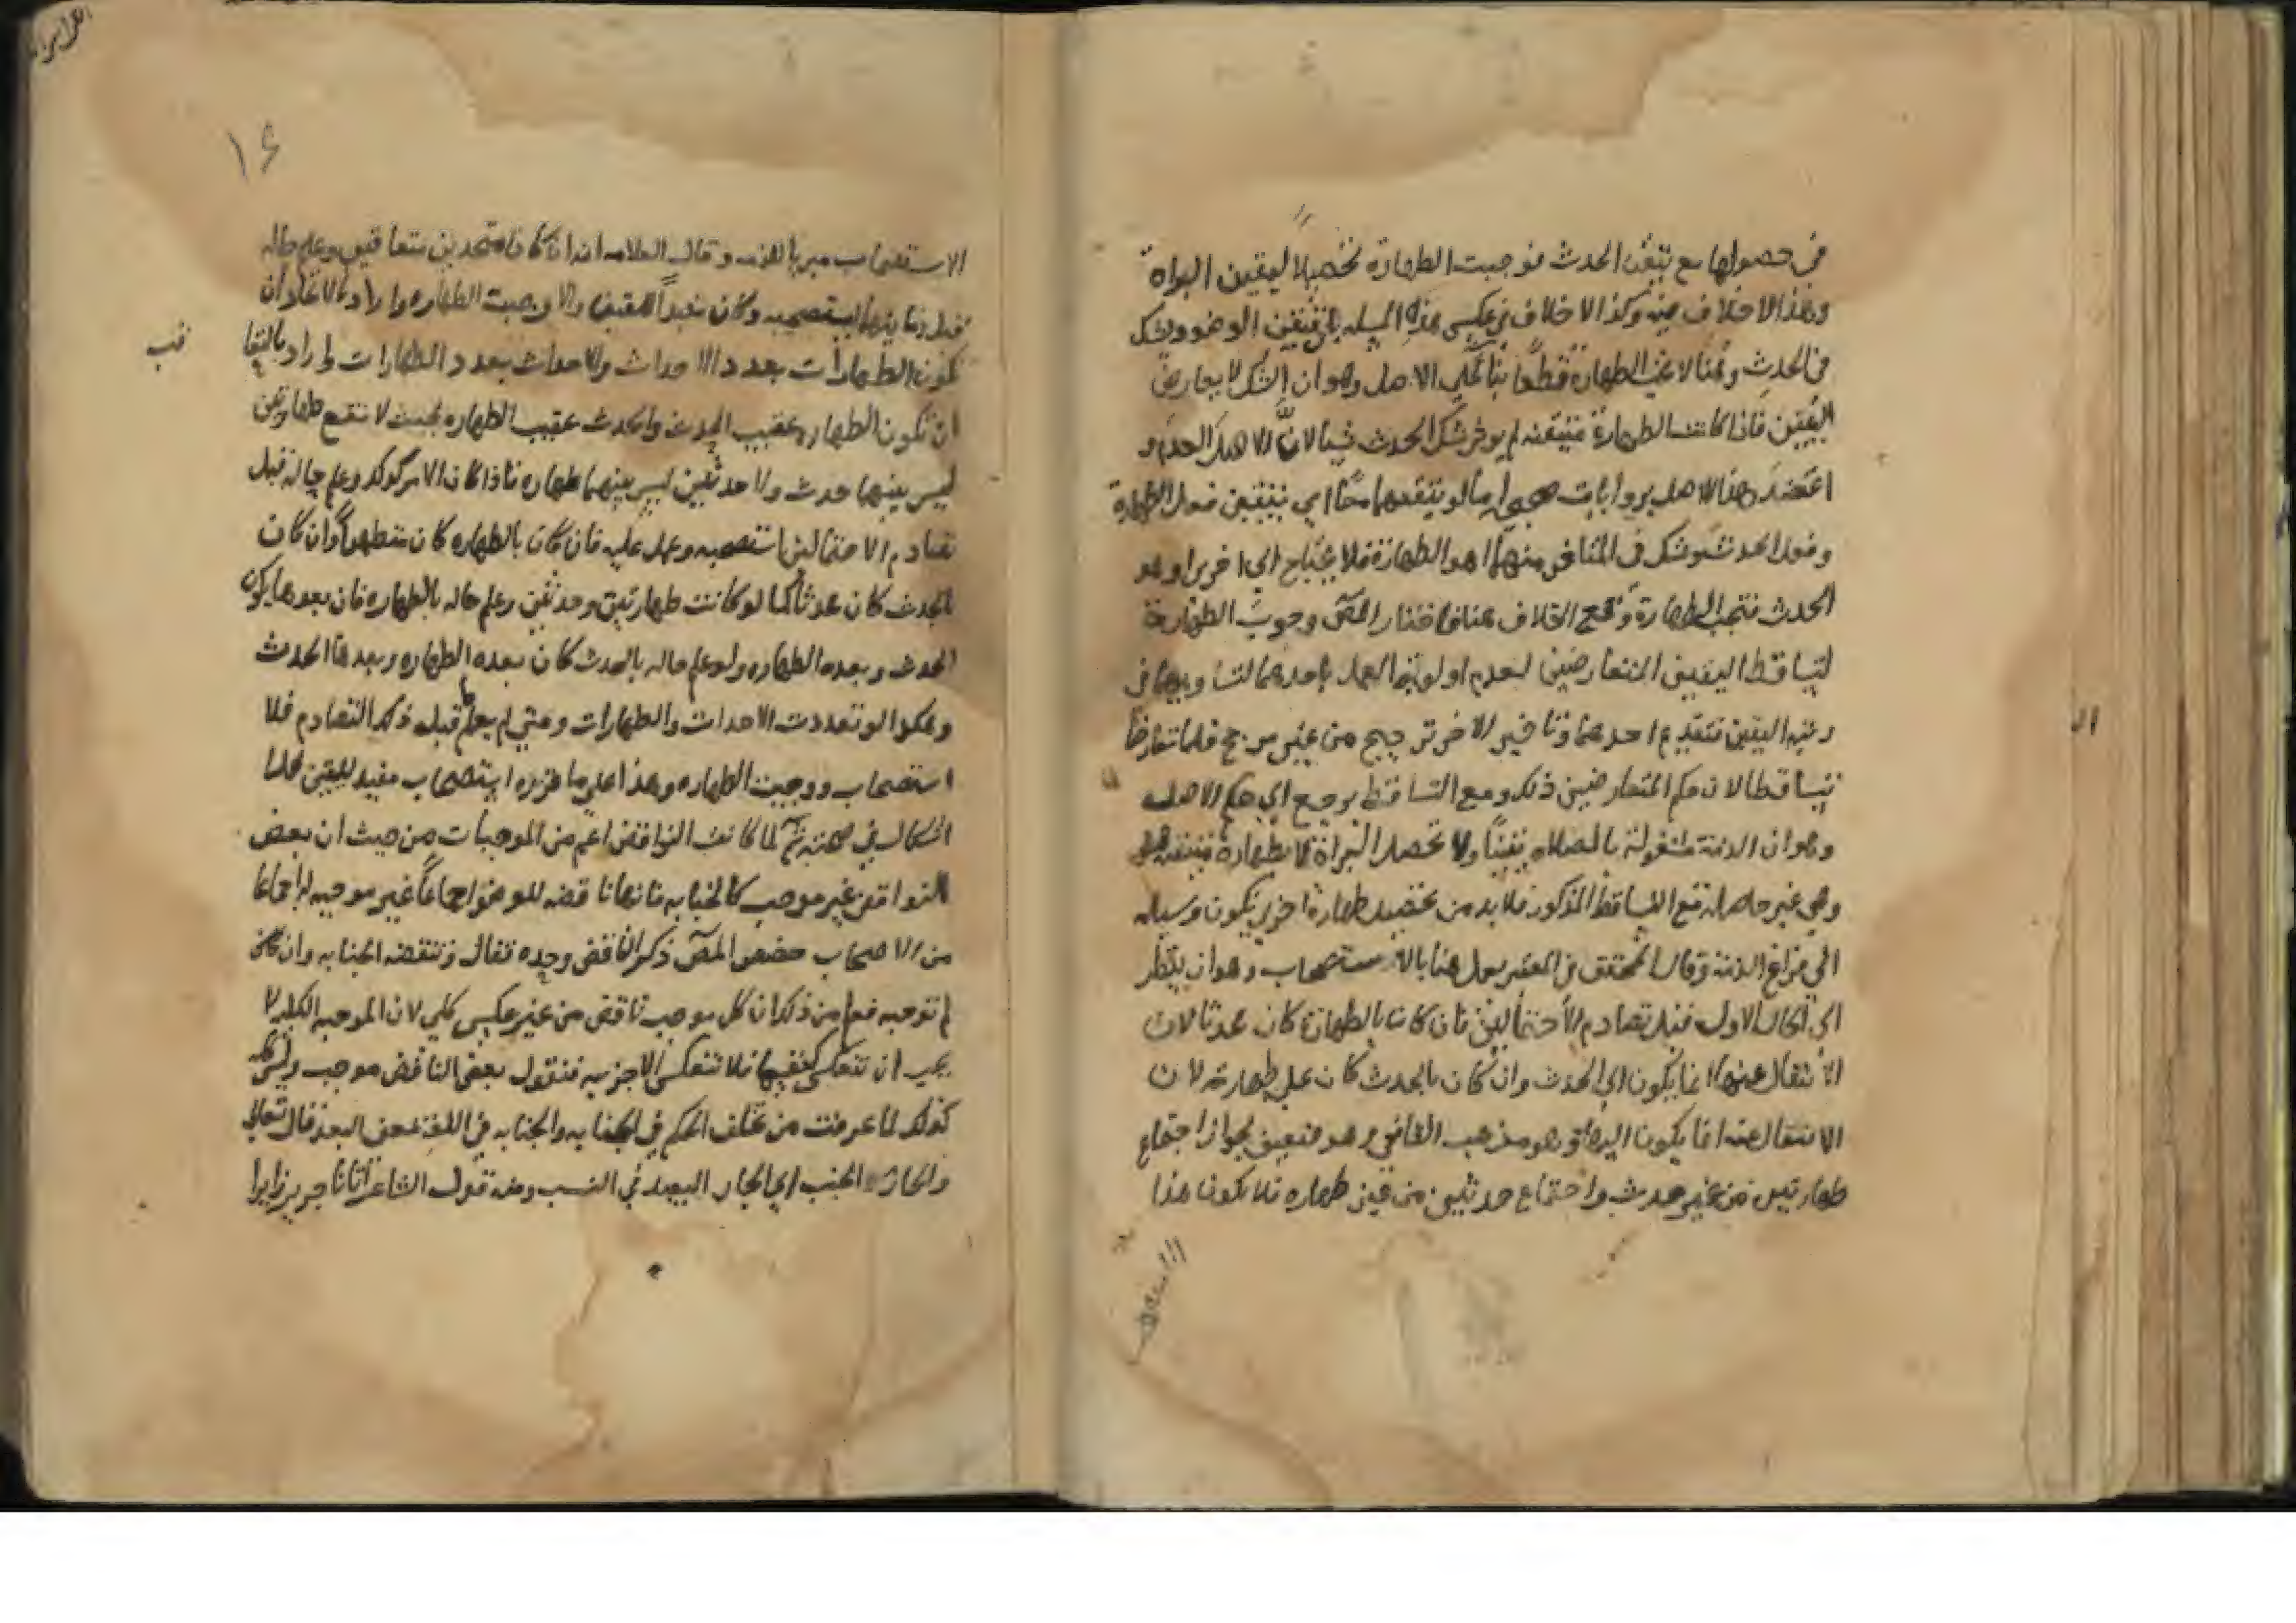 في حصولها مع تيقن الحدث فوجبت الطهارة تحصيلا ليقين البراة
وهذا لا خلاف فيه وكذا لا خلاف في عكس هذه المسيله بان تيقن الوضو ويشك
في الحدث وهنا لا تجب الطهارة قطعا بنا على الاصل وهو ان الشك لا يعارض
اليقين فاذا كانت الطهارة متيقنه لم يوثر شك الحدث شيا لان الاصل العدم و
اعتضد هذا الاصل بروايات اما لو تيقنهما معا اي تيقن فعل الطهارة
وفعل الحدث وشك في المتاخر منهما اهو الطهارة فلا يحتاج الى اخرى او هو
الحدث فتجب الطهارة وقع الخلاف هنا فاختار المص وجوب الطهارة
لتساقط اليقين المتعارضين لعدم اولوية العمل باحدهما لتساويهما في
رتبه اليقين فتقديم احدهما وتاخير الاخر ترجيح من غير مرجح فلما تعارضا
تساقطا لان حكم المتعارضين ذلك ومع التساقط يرجع الى حكم الاصل
وهو ان الذمة مشغولة بالصلاه يقينا ولا تحصل البراة الا بطهارة متيقنه
وهي غير حاصله مع التساقط المذكور فلا بد من تحصيل طهارة اخرى يكون وسيله
الى فراغ الذمة وقال المحقق في المعتبر يعمل هنا بالاستصحاب وهو ان ينظر
الى الحال الاول قبل تصادم الاحتمالين فان كان بالطهارة كان محدثا لان
الانتقال عنها انما يكون الى الحدث وان كان بالحدث كان على طهارته لان
الانتقال عنه انما يكون اليها وهو مذهب الشافعي وهو ضعيف لجواز اجتماع
طهارتين من غير حدث واجتماع حدثين من غير طهاره فلا يكون هذا
١٤
الاستصحاب مبريا للذمه وقال العلامه اذا كانا متحدين متعاقبين وعلم حاله
قبل زمانهما استصحبه وكان مفيدا لليقين والا وجبت الطهاره واراد بالاتحاد ان
تكون الطهارات بعدد الاحداث والاحداث بعدد الطهارات واراد بالتعا
قب
ان تكون الطهاره عقيب الحدث والحدث عقيب الطهاره بحيث لا تقع طهارتين
ليس بينهما حدث ولا حدثين ليس بينهما طهاره فاذا كان الامر كذلك وعلم حاله قبل
تصادم الاحتمالين استصحبه وعمل عليه فان كان بالطهاره كان متطهرا وان كان
بالحدث كان محدثا كما لو كانت طهارتين وحدثين وعلم حاله بالطهاره فان بعدها يكون
الحدث وبعده الطهاره ولو علم حاله بالحدث كان بعده الطهاره وبعدها الحدث
وهكذا لو تعددت الاحداث والطهارات ومتى لم يعلم قبل ذلك التصادم فلا
استصحاب ووجبت الطهاره وهذا على ما قرره استصحاب مفيد لليقين فلا
اشكال في صحته ثم لما كانت النواقض اعم من الموجبات من حيث ان بعض
النواقض غير موجب كالجنابه فانها ناقضه للوضو اجماعا غير موجبه له اجماعا
من الاصحاب خصص المص ذكر الناقض وحده فقال وتنقضه الجنابه وان
لم توجبه فعلم من ذلك ان كل موجب ناقض من غير عكس كلي لان الموجبه الكليه لا
يجب ان تنعكس كنفسها فلا تنعكس الا جزييه فنقول بعض الناقض موجب وليس كله
كذلك لما عرفت من تخلف الحكم في الجنابه والجنابه في اللغة بمعنى البعد قال تعالى
والجار الجنب اي الجار البعيد في النسب ومنه قول الشاعر اتانا حريث زايرا